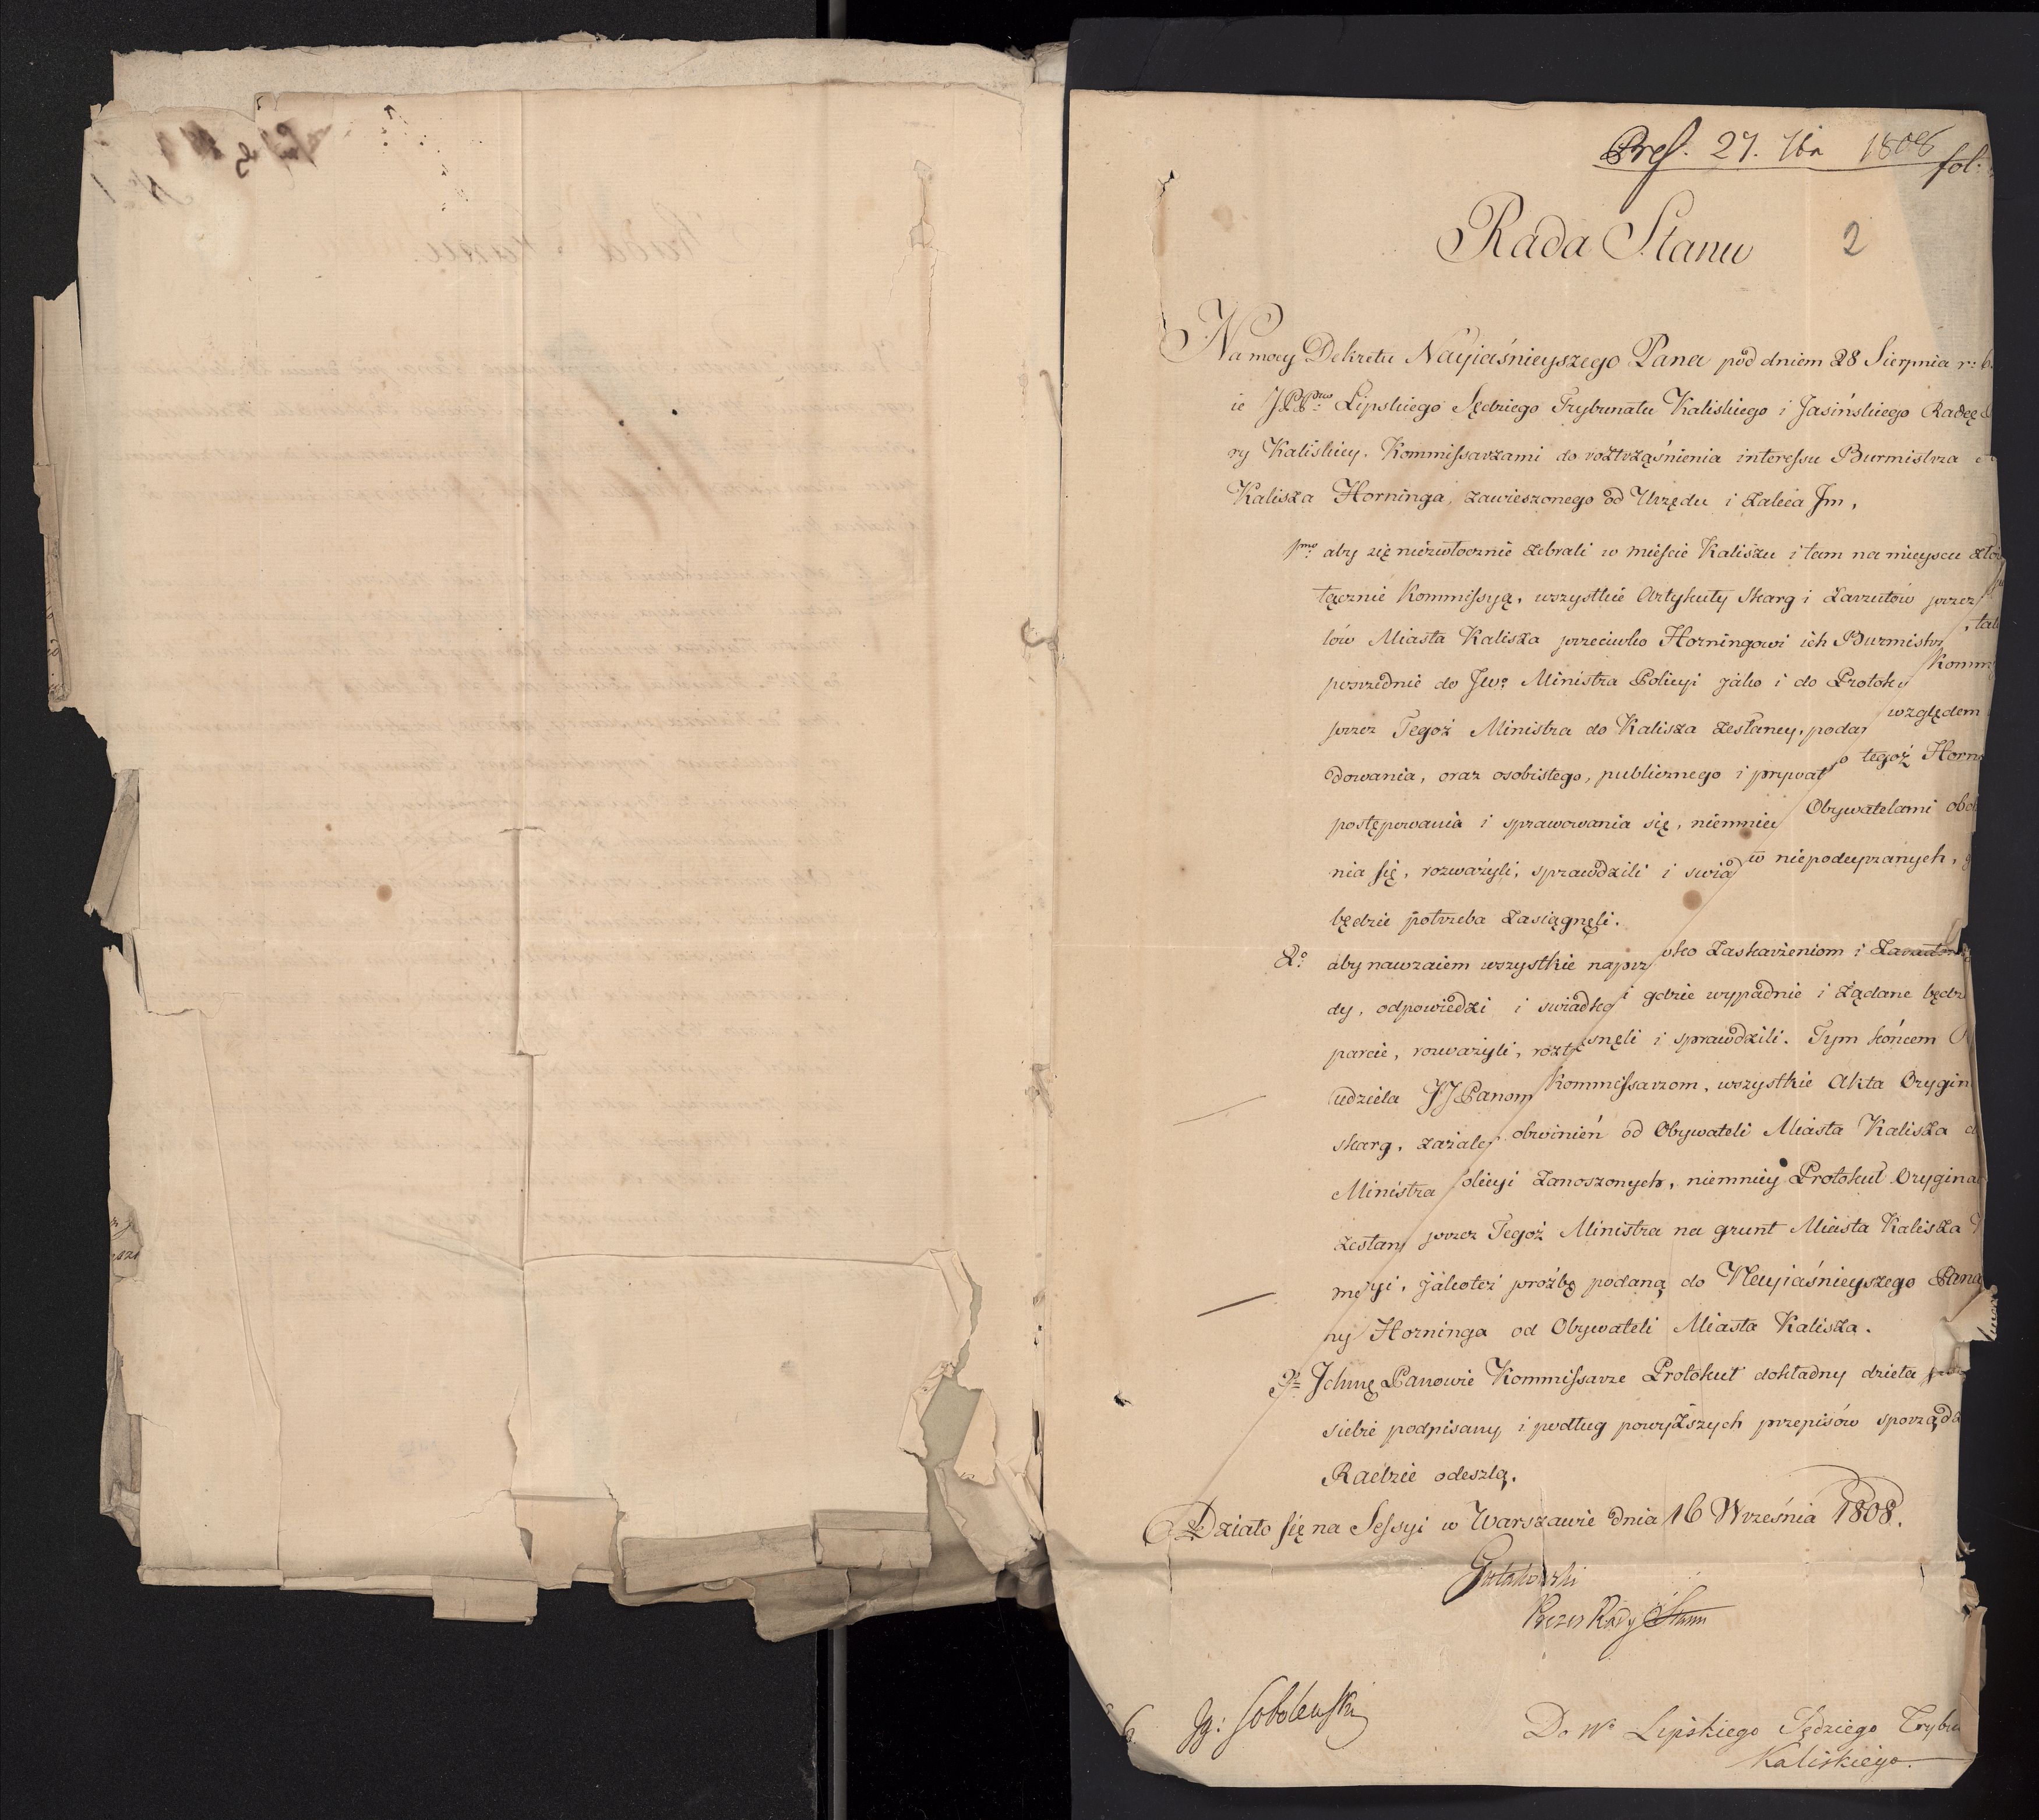 Pres. 27. 7br 1808
fol:
2
Rada Stanu
Na mocy Dekretu Nayiaśnieyszego Pana pod dniem 28 Sierpnia r: b.
ie JPP: Lipskiego Sędziego Trybunału Kaliskiego i Jasińskiego Radcę
ry Kaliskiey. Kommissarzami do roztrząśnienia interessu Burmistrza
Kalisza Horninga, zawieszonego od Urzędu i zaleca Jm,
1mo aby się niezwłocznie zebrali w mieście Kaliszu i tam na mieyscu
łącznie Kommissyą, wszystkie Artykuły skarg i zarzutów przez
lów Miasta Kalisza przeciwko Horningowi ich Burmistrz , tak
posrzednie do Jwo Ministra Policyi jako i do Protoko Kommi
przez Tegoż Ministra do Kalisza zesłaney, podan względem
dowania, oraz osobistego, publicznego i prywat o tegoż Horn
postępowania i sprawowania się, niemniey Obywatelami
nia się, rozważyli, sprawdzili i swiad w niepodeyrzanych,
będzie potrzeba zasiągnęli.
2o aby nawzaiem wszystkie naprz wko zaskarżeniom i
dy, odpowiedzi i swiadkó i gdzie wypadnie i żądane będz
parcie, rozważyli, rozt snęli i sprawdzili. Tym końcem
udziela JJPanom Kommissarzom, wszystkie Akta Orygin
skarg, zażaleń obwinień od Obywateli Miasta Kalisza
Ministra olicyi zanoszonych, niemniey Protokuł Orygina
zesłan przez Tegoż Ministra na grunt Miasta Kalisza
mi syi, jakoteż proźbę podaną do Nayiaśnieyszego Pana
ny Horninga od Obywateli Miasta Kalisza.
Ichmę Panowie Kommissarze Protokuł dokładny dzieła
siebie podpisany i podług powyższych przepisów sporząd
Radzie odeszlą.
Działo się na Sessyi w Warszawie dnia 16 Września 1808.
Gutakowski
Prezes Rady Stanu
Ig: Sobolewski
Do Wo Lipskiego Sędziego Trybu
Kaliskiego.